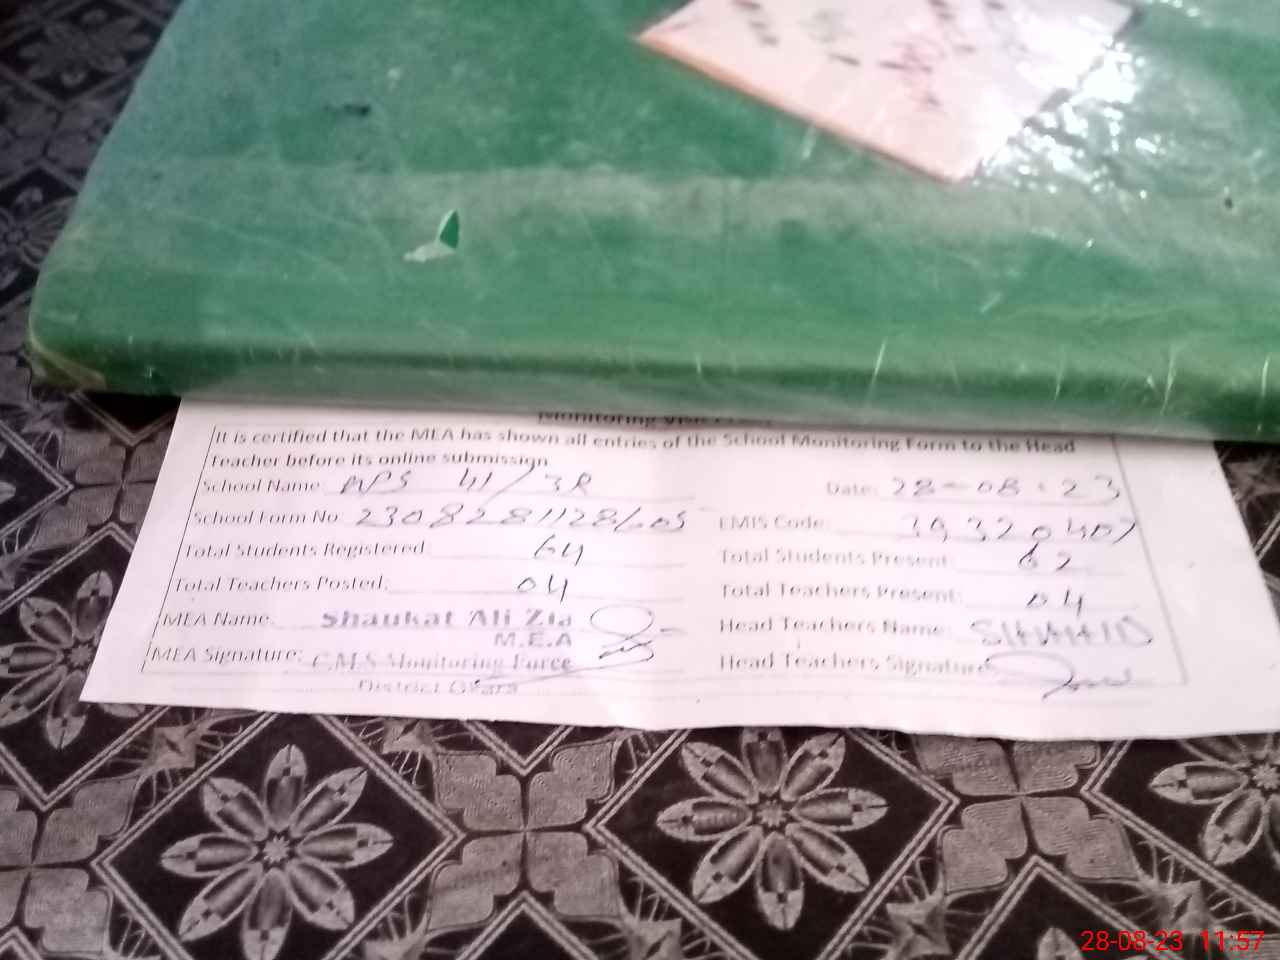 Monitoring Visit
It is certified that the MEA has shown all entries of the School Monitoring Form to the Head
Teacher before its online submission
School Name: MPS 41/3R Date: 28-08-23
School Form No 2308281128605 EMIS Code: 39320407
Total Students Registered: 64 Total Students Present: 62
Total Teachers Posted: 04 Total Teachers Present: 04
MEA Name: Shaukat Ali Zia Head Teachers Name: SHAHID
M.E.A
MEA Signature: C.M.S Monitoring Force Head Teachers Signature
District Okara
28-08-23 11:57